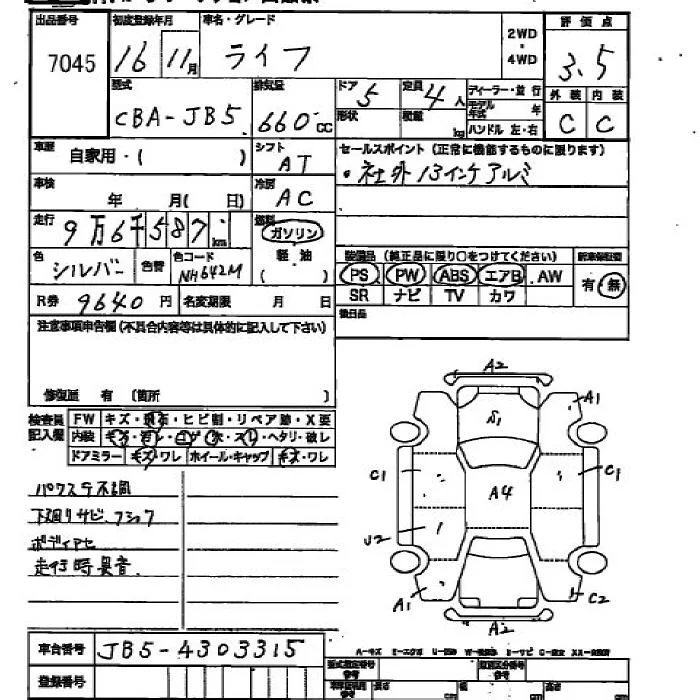 出品番号 初度登録年月 車名・グレード 2WD・4WD 評価点
7045 16 11月 ライフ 3.5
型式 排気量 ドア 5 定員 4人 ディーラー・並行 外装 内装
CBA-JB5 660cc 形状 積載 kg モデル年式 年 C C
ハンドル 左・右
車歴 自家用・( ) シフト AT セールスポイント (正常に機能するものに限ります)
・社外13インチアルミ
車検 年 月( 日) 冷房 AC
走行 9万6千587km 燃料 ガソリン
軽油
( )
色 シルバー 色替 色コード NH642M
装備品 (純正品に限り○をつけてください) 新車保証書
PS PW ABS エアB AW 有・無
SR ナビ TV カワ
R券 9640円 名変期限 月 日
後日品
注意事項申告欄(不具合内容等は具体的に記入して下さい)
修復歴 有 (箇所 )
検査員記入欄 FW キズ・飛石・ヒビ割・リペア跡・X要
内装 キズ・ヨゴレ・コゲ・穴・スレ・ヘタリ・破レ
ドアミラー キズ・ワレ ホイール・キャップ キズ・ワレ
パワステ不調
下廻りサビ、フラック
ボディアセ
走行時異音
A2
A1
S1
C1
A4
C1
U2
A1
C2
A2
車台番号 JB5-4303315
A-キズ E-エクボ
型式指定番号 参考 類別区分番号 参考
登録番号
長さ cm 幅 cm 高さ cm